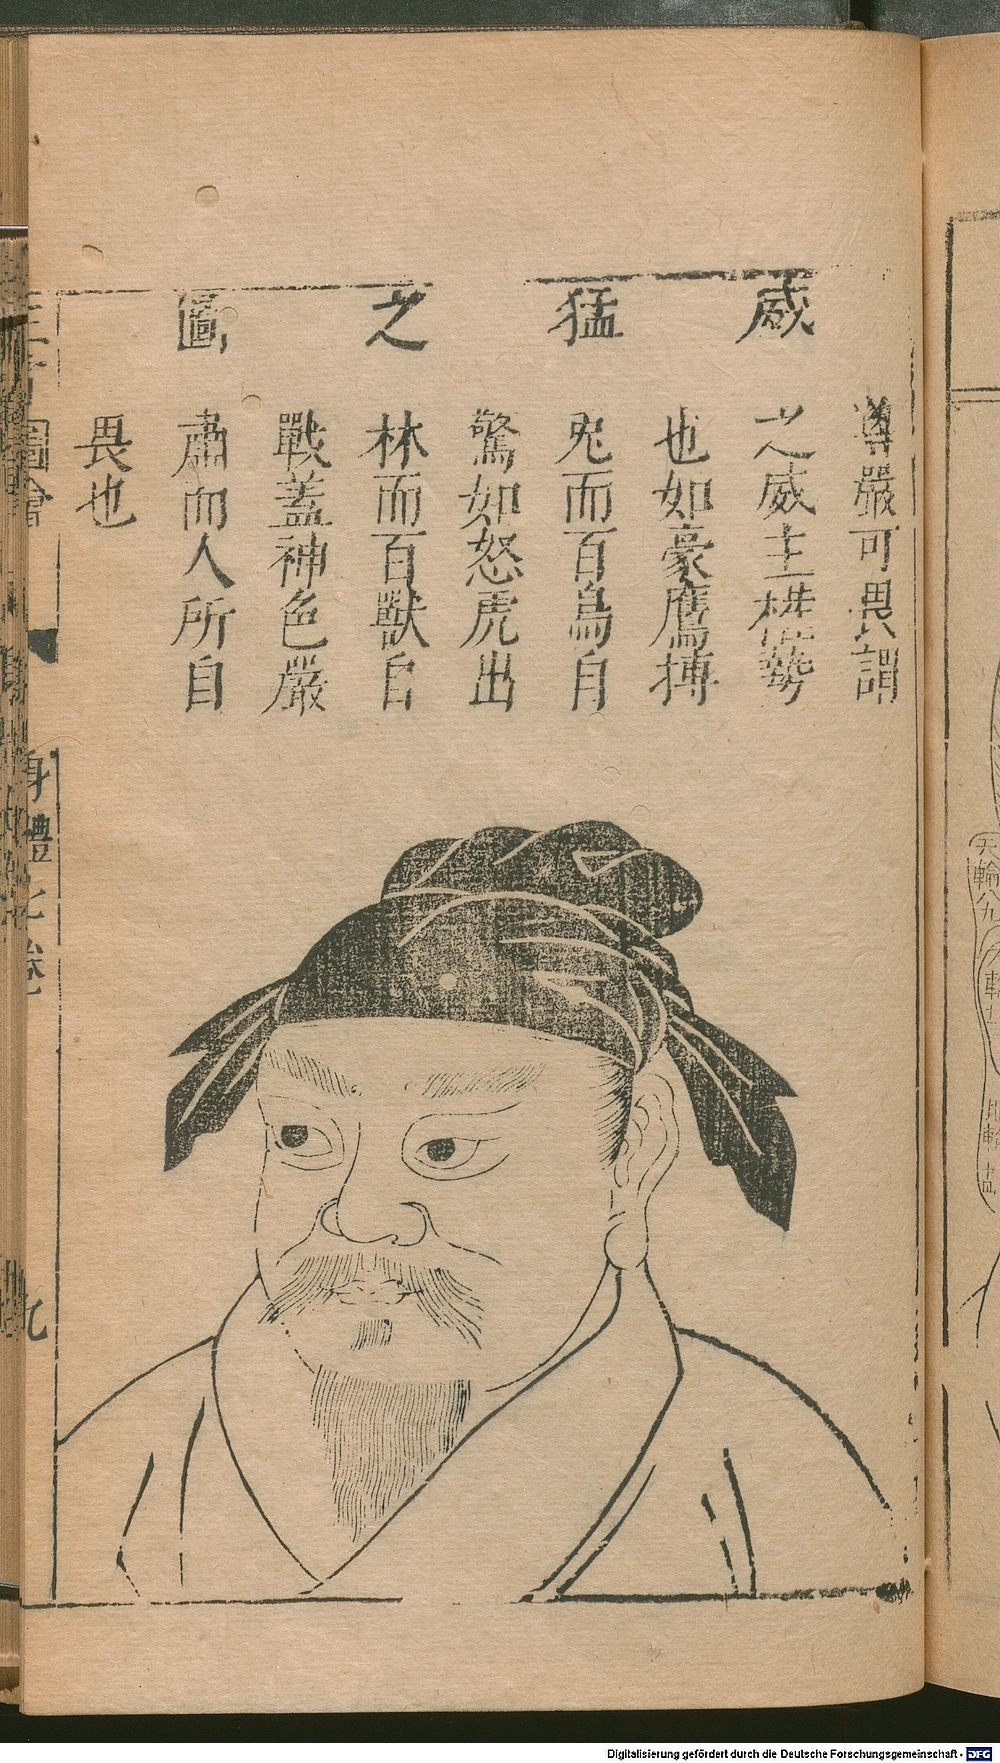 威猛之圖
尊嚴可畏謂
之威主權勢
也如豪鷹搏
兔而百鳥自
驚如怒虎出
林而百獸自
戰蓋神色嚴
肅而人所自
畏也
三才圖會
身體七卷
九
天輪八九
Digitalisierung gefördert durch die Deutsche Forschungsgemeinschaft - DFG